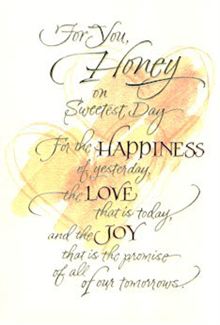 For You,
Honey
on
Sweetest Day
For the HAPPINESS
of yesterday,
the LOVE
that is today,
and the JOY
that is the promise
of all
of our tomorrows.